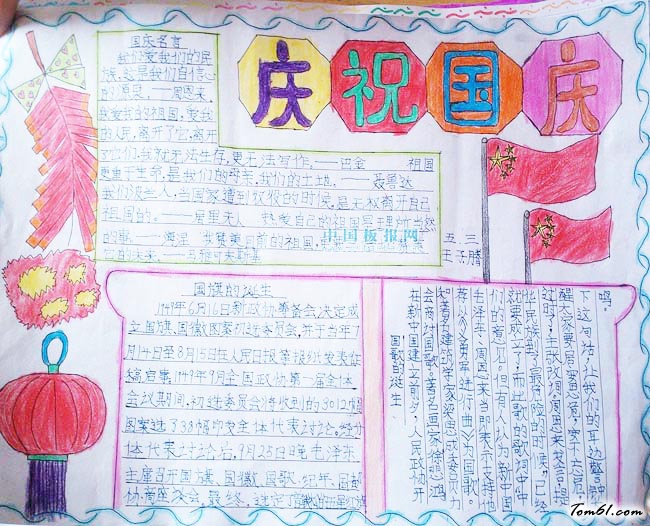 庆祝国庆
国庆名言
我们爱我们的民
族，这是我们自信心
的源泉。——周恩来
我爱我的祖国，爱我
的人民，离开了它，离开
了它们，我就无法生存，更无法写作。——巴金 祖国
更重于生命，是我们的母亲，我们的土地。——聂鲁达
我们波兰人，当国家遭到奴役的时候，是无权离开自己
祖国的。——居里夫人 热爱自己的祖国是理所当然
的事。——海涅 我赞美目前的祖国，
中国板报网
五.三
王子腾
国旗的诞生
1949年6月16日新政协筹备会决定成
立国旗、国徽图案初选委员会，并于当年7
月14日至8月15日在人民日报等报纸发表征
稿启事。1949年9月全国政协第一届全体
会议期间，初选委员会将收到的3012幅
图案选了38幅印发全体代表讨论。经过
全体代表讨论后，9月25日晚毛泽东
主席召开国旗、国徽、国歌、纪年、国都
协商座谈会，最终，选定了
国歌的诞生
在新中国建立前夕，人民政协开
会商讨国歌，著名画家徐悲鸿
和著名建筑学家梁思成等委员力
荐以《义勇军进行曲》为国歌。
毛泽东、周恩来当即表示支持他
们的意见。但有人认为新中国
就要成立了，而此歌的歌词中
中华民族到了最危险的时候，已经
过时，主张改词。周恩来发言提
醒大家要居安思危，
下这句话，让我们的耳边警钟
鸣。
Tom61.com